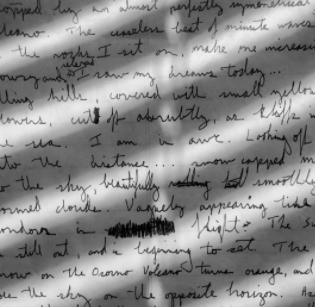 topped by an almost perfectly symmetrical
The ceaseless beat of minute waves
the rocks I sit on, make me increasi
and relaxed so I saw my dreams today...
lling hills covered with small yellow
lowers, cut off abruptly, as bluffs
sea. I am in awe. Looking off
to the distance.... snow capped m
o the sky, beautifully smoothly
ormed clouds. Vaguely appearing like
ondor in flight? The su
still out, and is beginning to set. The
now on the Osorno Volcano turns orange, and
the sky on the opposite horizon. As